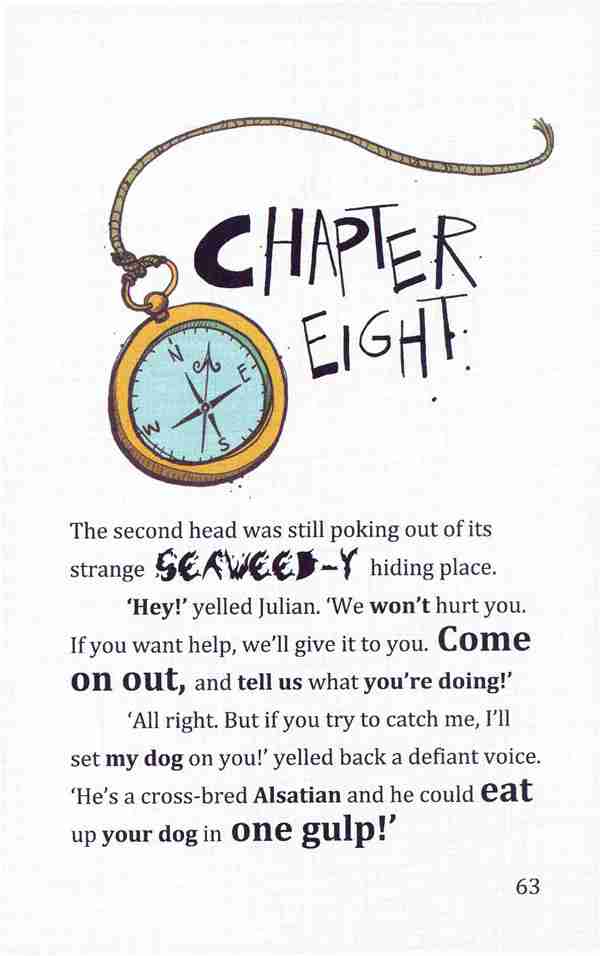 CHAPTER
EIGHT
N
E
W
S
The second head was still poking out of its
strange SEAWEED-Y hiding place.
‘Hey!’ yelled Julian. ‘We won’t hurt you.
If you want help, we’ll give it to you. Come
on out, and tell us what you’re doing!’
‘All right. But if you try to catch me, I’ll
set my dog on you!’ yelled back a defiant voice.
‘He’s a cross-bred Alsatian and he could eat
up your dog in one gulp!’
63